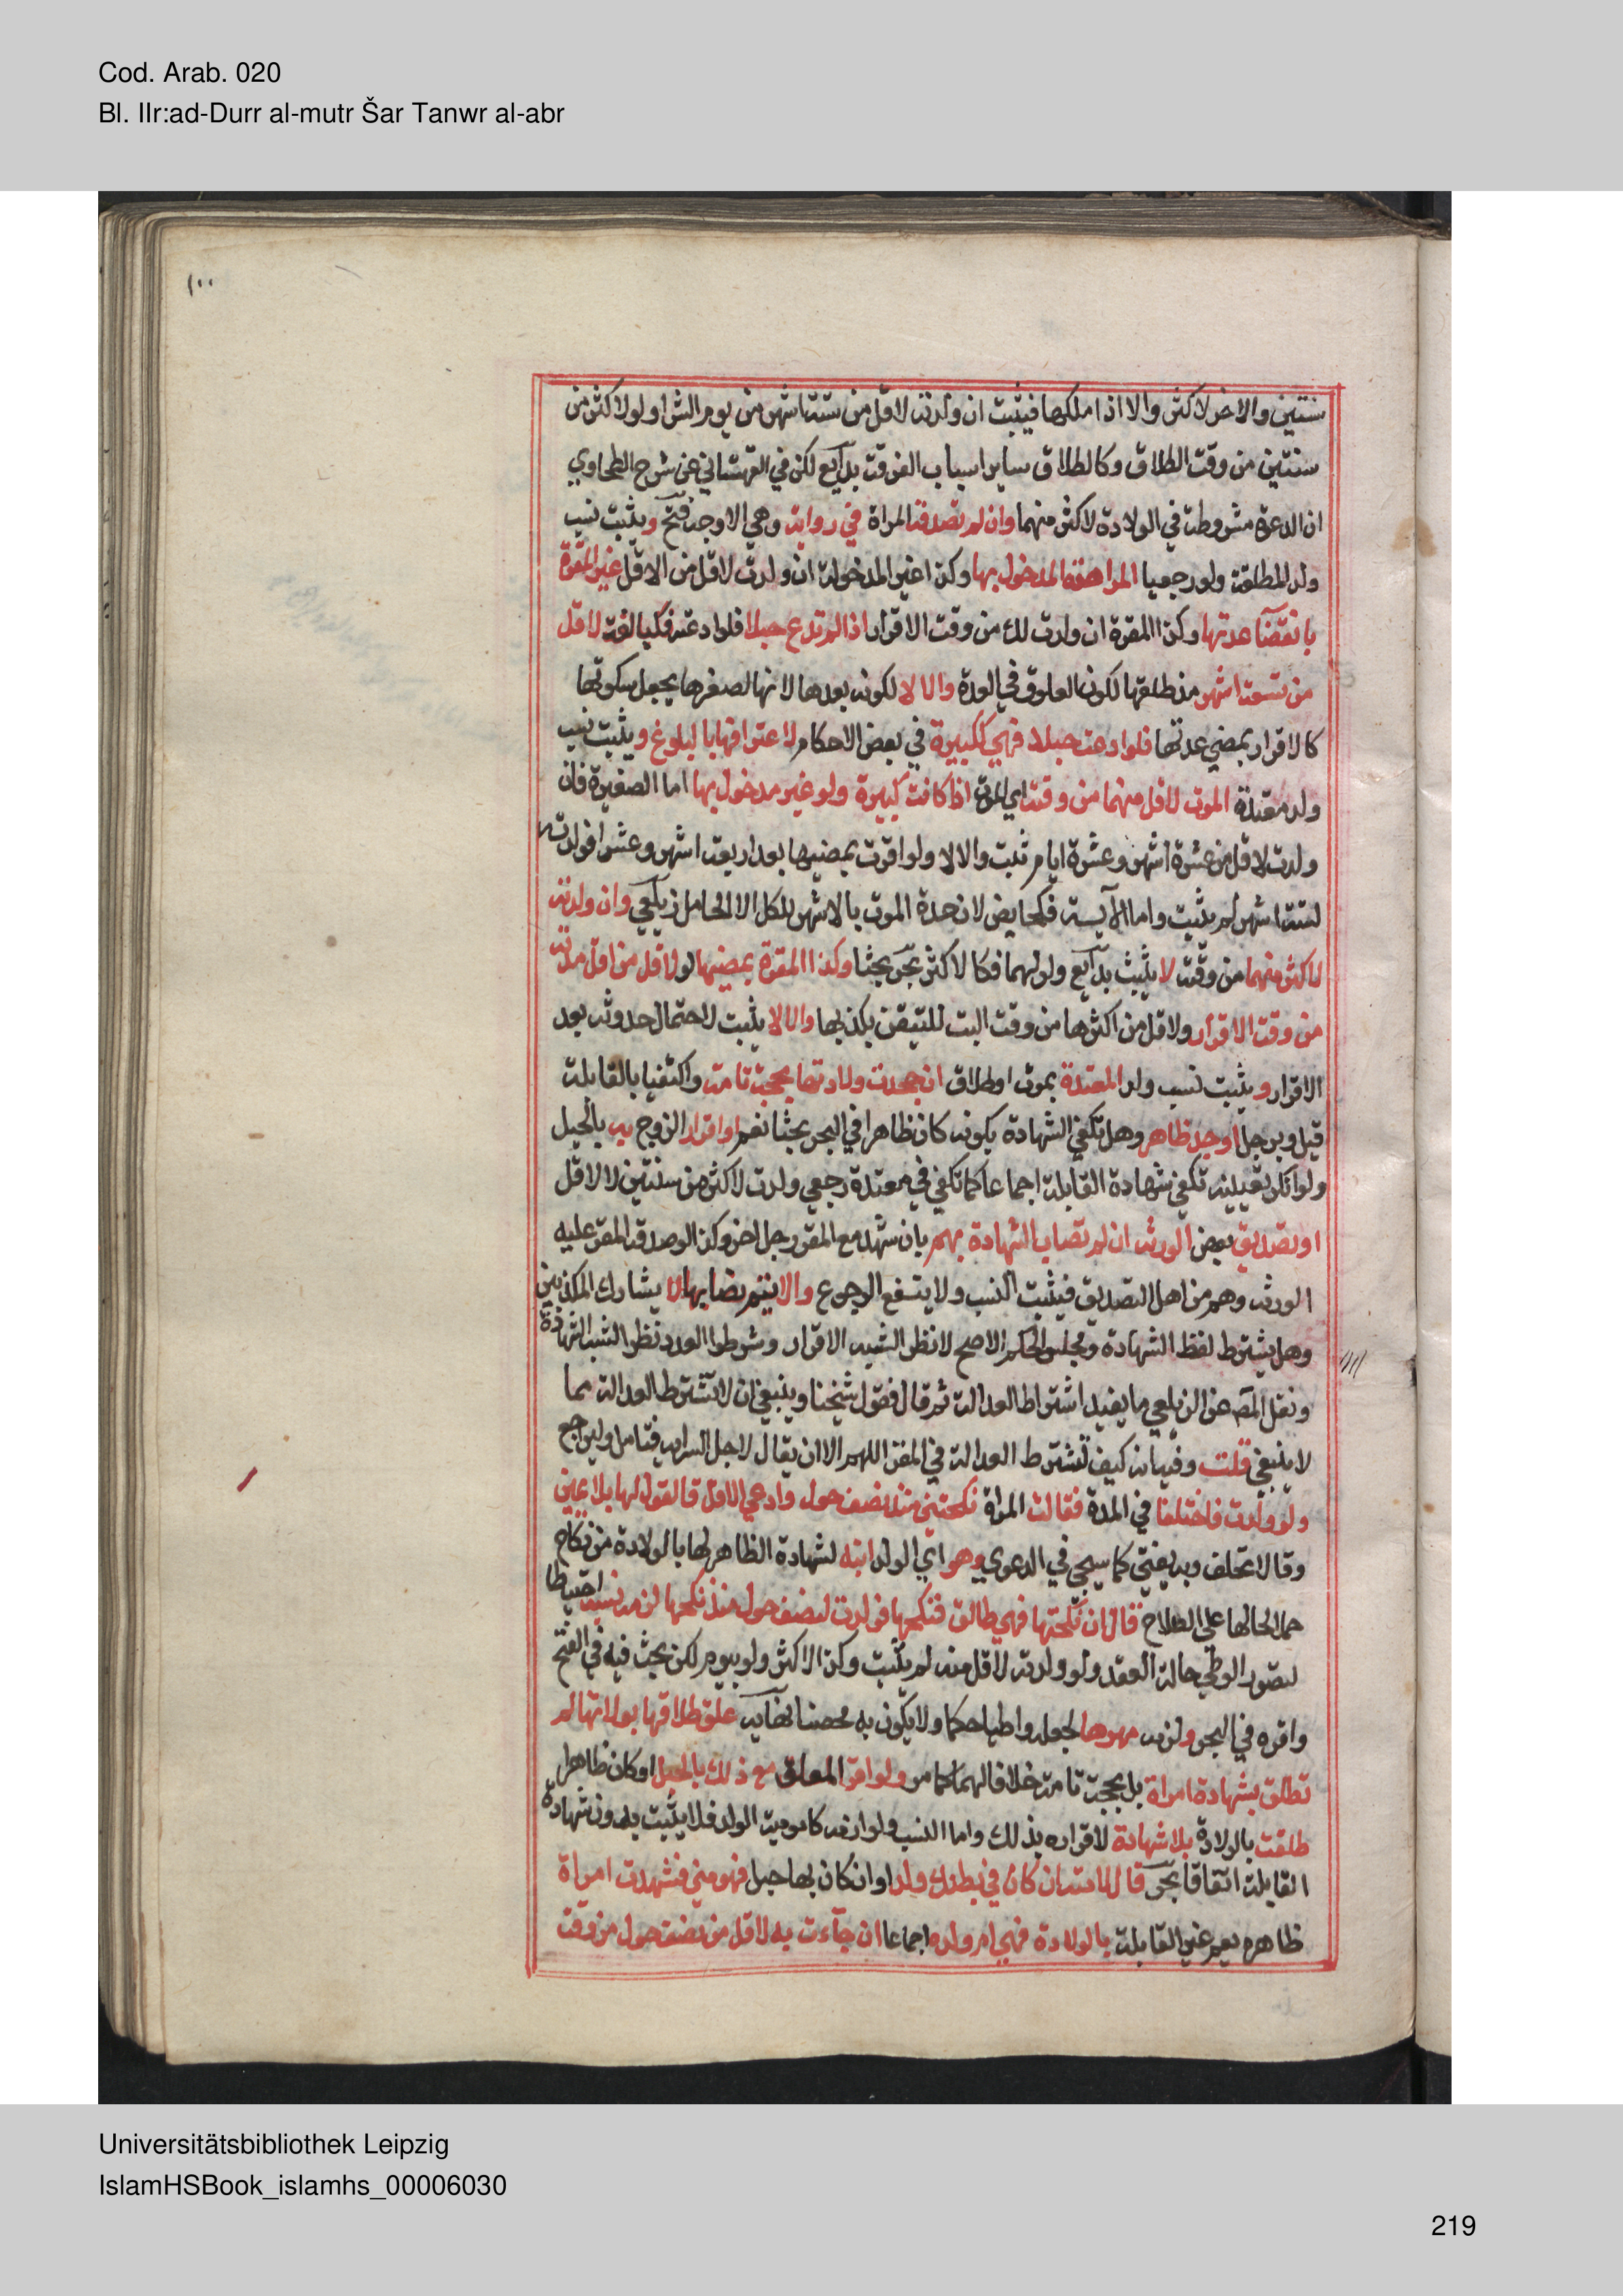 Cod. Arab. 020
Bl. IIr:ad-Durr al-mutr Šar Tanwr al-abr
١٠٠
سنتين والاخر لاكثر والا اذا ملكها فيثبت ان ولدته لاقل من ستة اشهر من يوم الشرا ولو لاكثر من
سنتين من وقت الطلاق وكالطلاق ساير اسباب الفرقة بدآيع لكن في القهستاني عن شرح الطحاوي
ان الدعوة مشروطة في الولادة لاكثر منهما وان لم تصدقه المراة في رواية وهي الاوجه فتح ويثبت نسب
ولد المطلقة ولو رجعيا المراهقة المدخول بها وكذا غير المدخولة ان ولدت لاقل من الاقل غير المقرة
بانقضآ عدتها وكذا المقرة ان ولدت لذلك من وقت الاقرار اذا لم تدع حبلا فلو ادعته فكبالغة لاقل
من تسعة اشهر مذ طلقها لكون العلوق في العدة والا لا لكونه بعدها لانها لصغرها يجعل سكوتها
كالاقرار بمضي عدتها فلو ادعت حبلا فهي ككبيرة في بعض الاحكام لاعترافها بالبلوغ ويثبت نسب
ولد معتدة الموت لاقل منهما من وقته اي الموت اذا كانت كبيرة ولو غير مدخول بها اما الصغيرة فان
ولدت لاقل من عشرة اشهر وعشرة ايام ثبت والا لا ولو اقرت بمضيها بعد اربعة اشهر وعشر افولدته
لستة اشهر لم يثبت واما الآيسة فكحايض لان عدة الموت بالاشهر للكل الا الحامل زيلعي وان ولدته
لاكثر منهما من وقته لا يثبت بدآيع ولو لهما فكالاكثر بحر بحثا وكذا المقرة بمضيها لو لاقل من اقل مدته
من وقت الاقرار ولاقل من اكثرها من وقت البت للتيقن بكذبها والا لا يثبت لاحتمال حدوثه بعد
الاقرار ويثبت نسب ولد المعتدة بموت او طلاق ان جحدت ولادتها بحجة تامة واكتفيا بالقابلة
قيل وبرجل او حبل ظاهر وهل تكفي الشهادة بكونه كان ظاهرا في البحر بحثا نعم او اقرار الزوج به بالحبل
ولو انكر تعيينه تكفي شهادة القابلة اجماعا كما تكفي في معتدة رجعي ولدت لاكثر من سنتين لا لاقل
او تصديق بعض الورثة ان لم تصاب الشهادة بهم بان شهد مع المقر رجل اخر وكذا لو صدق المقر عليه
الورثة وهم من اهل التصديق فيثبت النسب ولا ينفع الرجوع والا يتم نصابها لا يشارك المكذبين
وهل يشترط لفظ الشهادة ومجلس الحكم الاصح لا نظرا لشبه الاقرار وشرطوا العدد نظرا لشبه الشهادة
ونقل المص عن الزيلعي ما يفيد اشتراط العدالة ثم قال فقول شيخنا وينبغي ان لا تشترط العدالة مما
لا ينبغي قلت وفيه انه كيف تشترط العدالة في المقر اللهم الا ان يقال لاجل السراية فتامل وليراجع
ولو ولدت فاختلفا في المدة فقالت المراة نكحتني منذ نصف حول وادعي الاقل فالقول لها بلا يمين
وقالا تحلف وبه يفتي كما سيجي في الدعوي وهو اي الولد ابنه لشهادة الظاهر لها بالولادة من نكاح
حملا لحالها علي الصلاح قال ان نكحتها فهي طالق فنكحها فولدت لنصف حول منذ نكحها لزمه نسبه احتياطا
لتصور الوطي حالة العقد ولو ولدته لاقل منه لم يثبت وكذا لاكثر ولو بيوم لكن بحث فيه في الفتح
واقره في البحر ولزمه مهرها لجعله واطيا حكما ولا يكون به محصنا نهايه علق طلاقها بولادتها لم
تطلق بشهادة امراة بل بحجة تامة خلافا لهما كما مر ولو اقر المعلق مع ذلك بالحبل او كان ظاهرا
طلقت بالولادة بلا شهادة لاقراره بذلك واما النسب ولوازمه كامومية الولد فلا يثبت بدون شهادة
القابلة اتفاقا بحر قال لامته ان كان في بطنك ولد او ان كان بها حبل فهو مني فشهدت امراة
ظاهره يعم غير القابلة بالولادة فهي ام ولده اجماعا ان جآءت به لاقل من نصف حول من وقت
Universitätsbibliothek Leipzig
IslamHSBook_islamhs_00006030
219